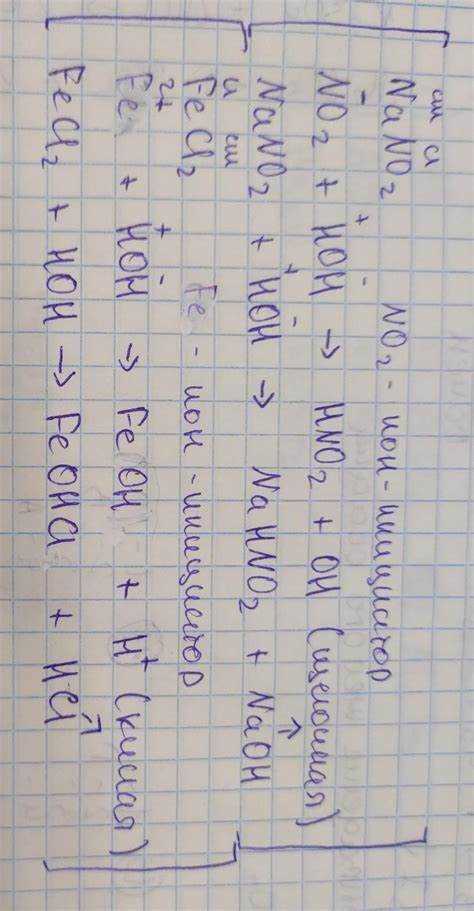 NaNO₂ NO₂ - ион-инициатор
сил сл
NO₂⁻ + H⁺OH⁻ → HNO₂ + OH (щелочная)
NaNO₂ + H⁺OH⁻ → NaHNO₂ + NaOH
FeCl₂ Fe - ион-инициатор
сл сил
Fe²⁺ + H⁺OH⁻ → FeOH + H⁺ (кислая)
FeCl₂ + HOH → FeOHCl + HCl